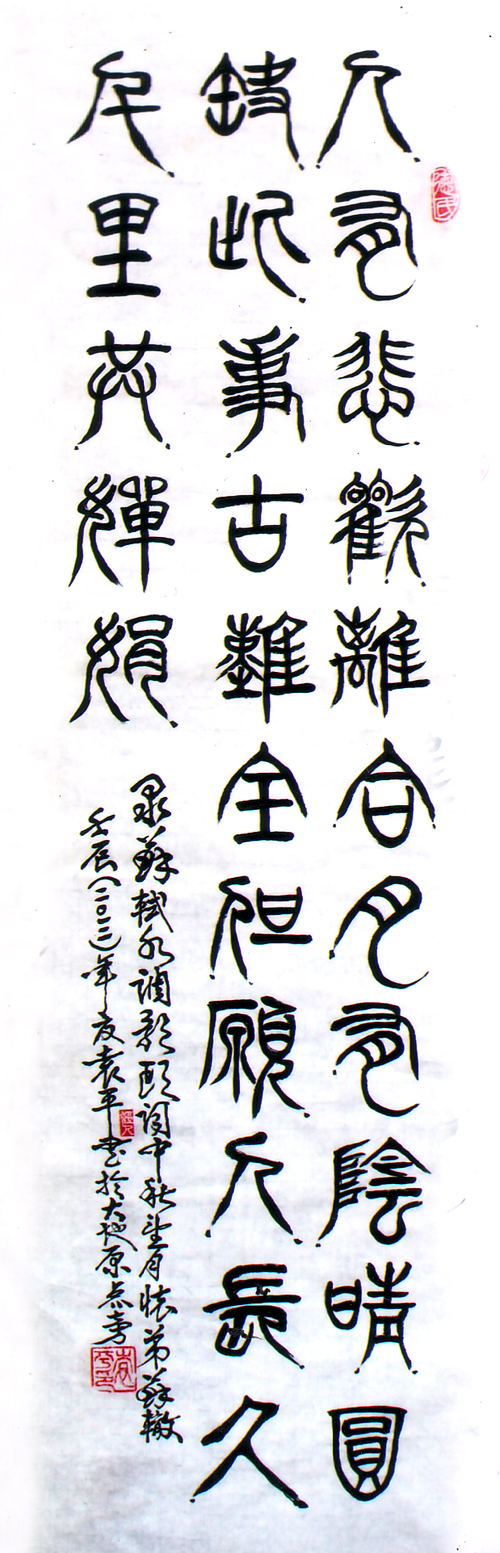 人有悲歡離合月有陰晴圓
缺此事古難全但願人長久
千里共嬋娟
录蘇軾水调歌頭词中秋望月懷弟蘇轍
壬辰(二〇一二)年夏袁平书於大地原点旁